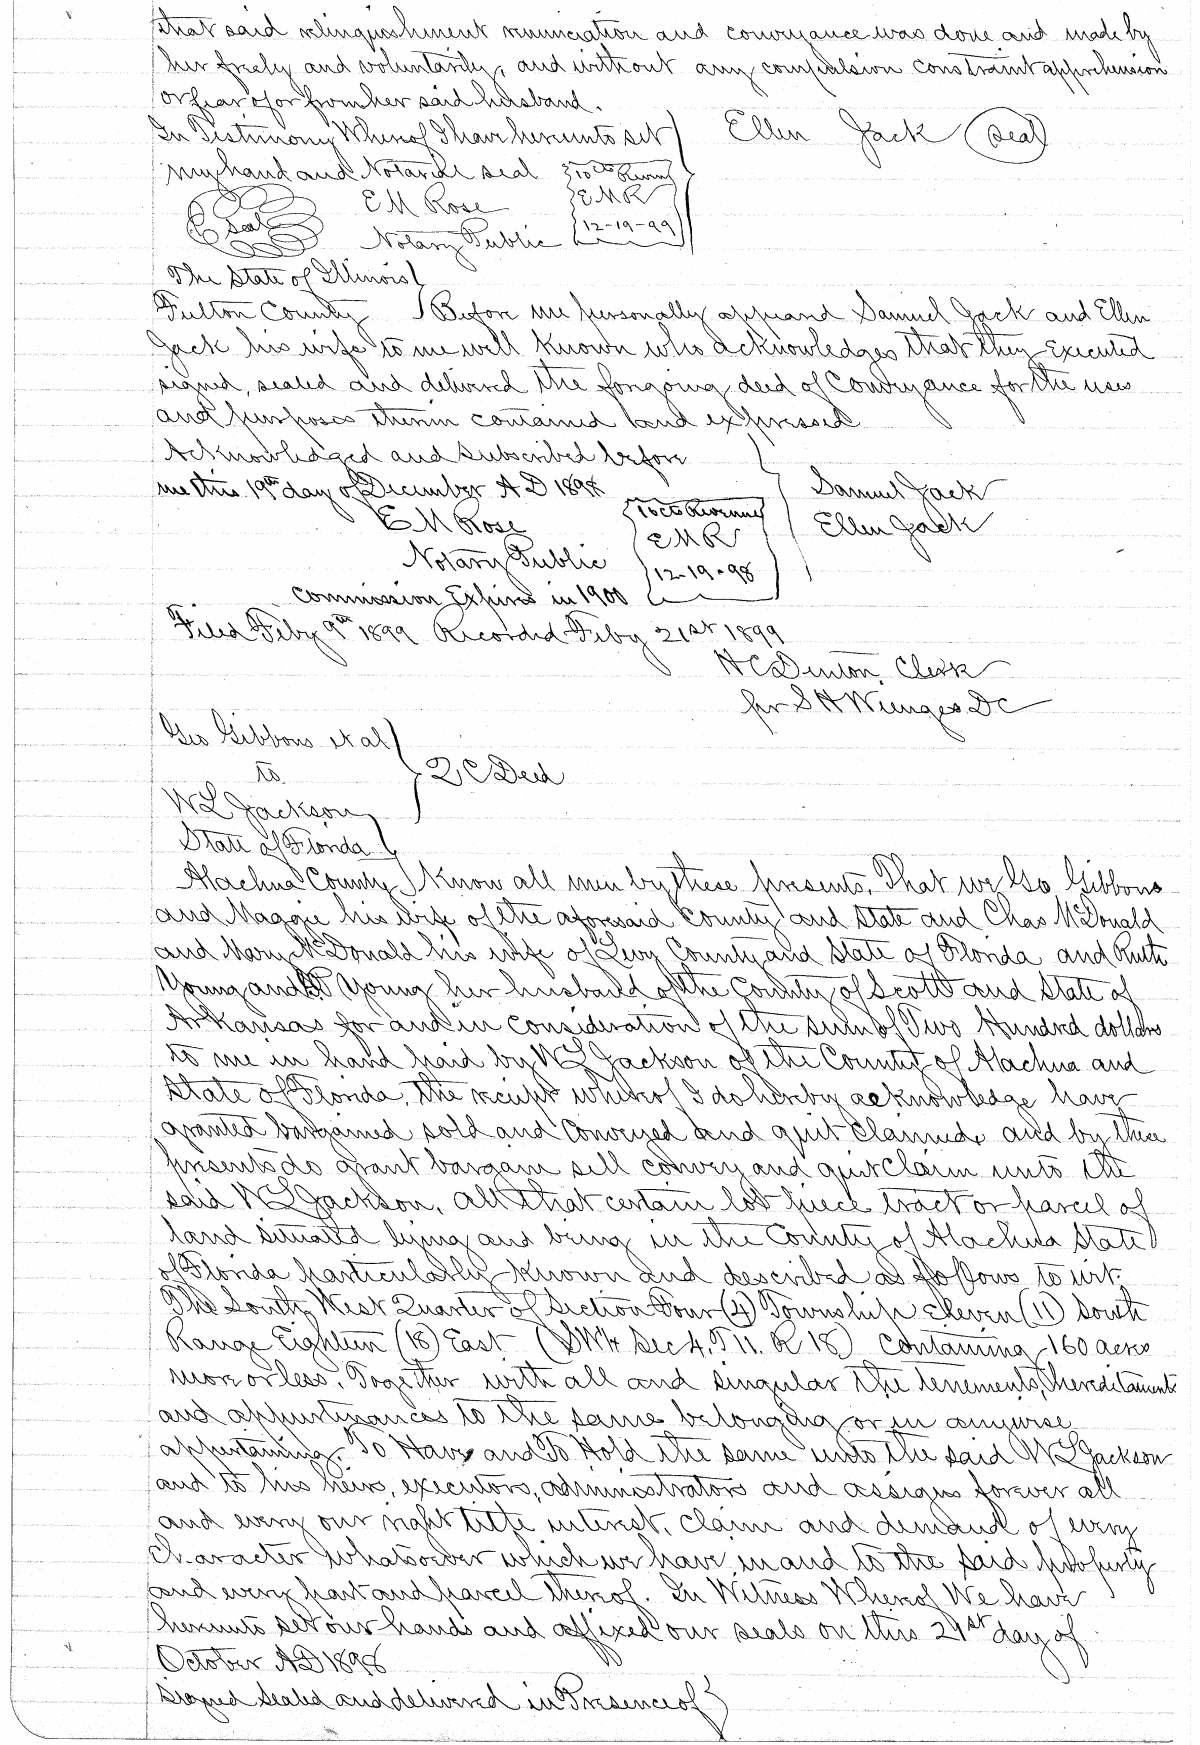 that said relinquishment renunciation and conveyance was done and made by
her freely and voluntarily, and without any compulsion constraint apprehension
or fear of or from her said husband.
In Testimony Whereof I have hereunto set
my hand and Notarial seal
Ellen Jack (seal)
10 cts Revenue
E M R
12-19-99
seal
E M Rose
Notary Public
The State of Illinois
Fulton County Before me personally appeared Samuel Jack and Ellen
Jack his wife to me well known who acknowledges that they executed
signed, sealed and delivered the forgoing deed of Conveyance for the uses
and purposes therein contained and expressed
Acknowledged and subscribed before
me this 19th day of December A D 1898
E M Rose
Notary Public
Commission Expires in 1900
10 cts Revenue
E M R
12-19-98
Samuel Jack
Ellen Jack
Filed Feby 9th 1899 Recorded Feby 21st 1899
H C Denton, Clerk
per S H Wienges D C
Geo Gibbons et al
to
W L Jackson
2 C Deed
State of Florida
Alachua County Know all men by these presents, That we Geo Gibbons
and Maggie his wife of the aforesaid County and State and Chas McDonald
and Mary McDonald his wife of Levy County and State of Florida and Ruth
Young and Young her husband of the County of Scott and State of
Arkansas for and in consideration of the sum of Two Hundred dollars
to me in hand paid by W L Jackson of the County of Alachua and
State of Florida, the receipt whereof I do hereby acknowledge have
granted bargained sold and Conveyed and quit claimed, and by these
presents do grant bargain sell convey and quit Claim unto the
said W L Jackson, all that certain lot piece tract or parcel of
land situated lying and being in the County of Alachua State
of Florida particularly known and described as follows to wit:
The South West Quarter of Section Four (4) Township Eleven (11) South
Range Eighteen (18) East (SW4 Sec 4. T 11. R 18) containing 160 acres
more or less. Together with all and singular the tenements, hereditaments
and appurtenances to the same belonging or in anywise
appertaining. To Have and To Hold the same unto the said W L Jackson
and to his heirs, executors, administrators and assigns forever all
and every our right title interest, claim and demand of every
character whatsoever which we have in and to the said property
and every part and parcel thereof. In Witness Whereof We have
hereunto set our hands and affixed our seals on this 21st day of
October A D 1898
Signed Sealed and delivered in Presence of